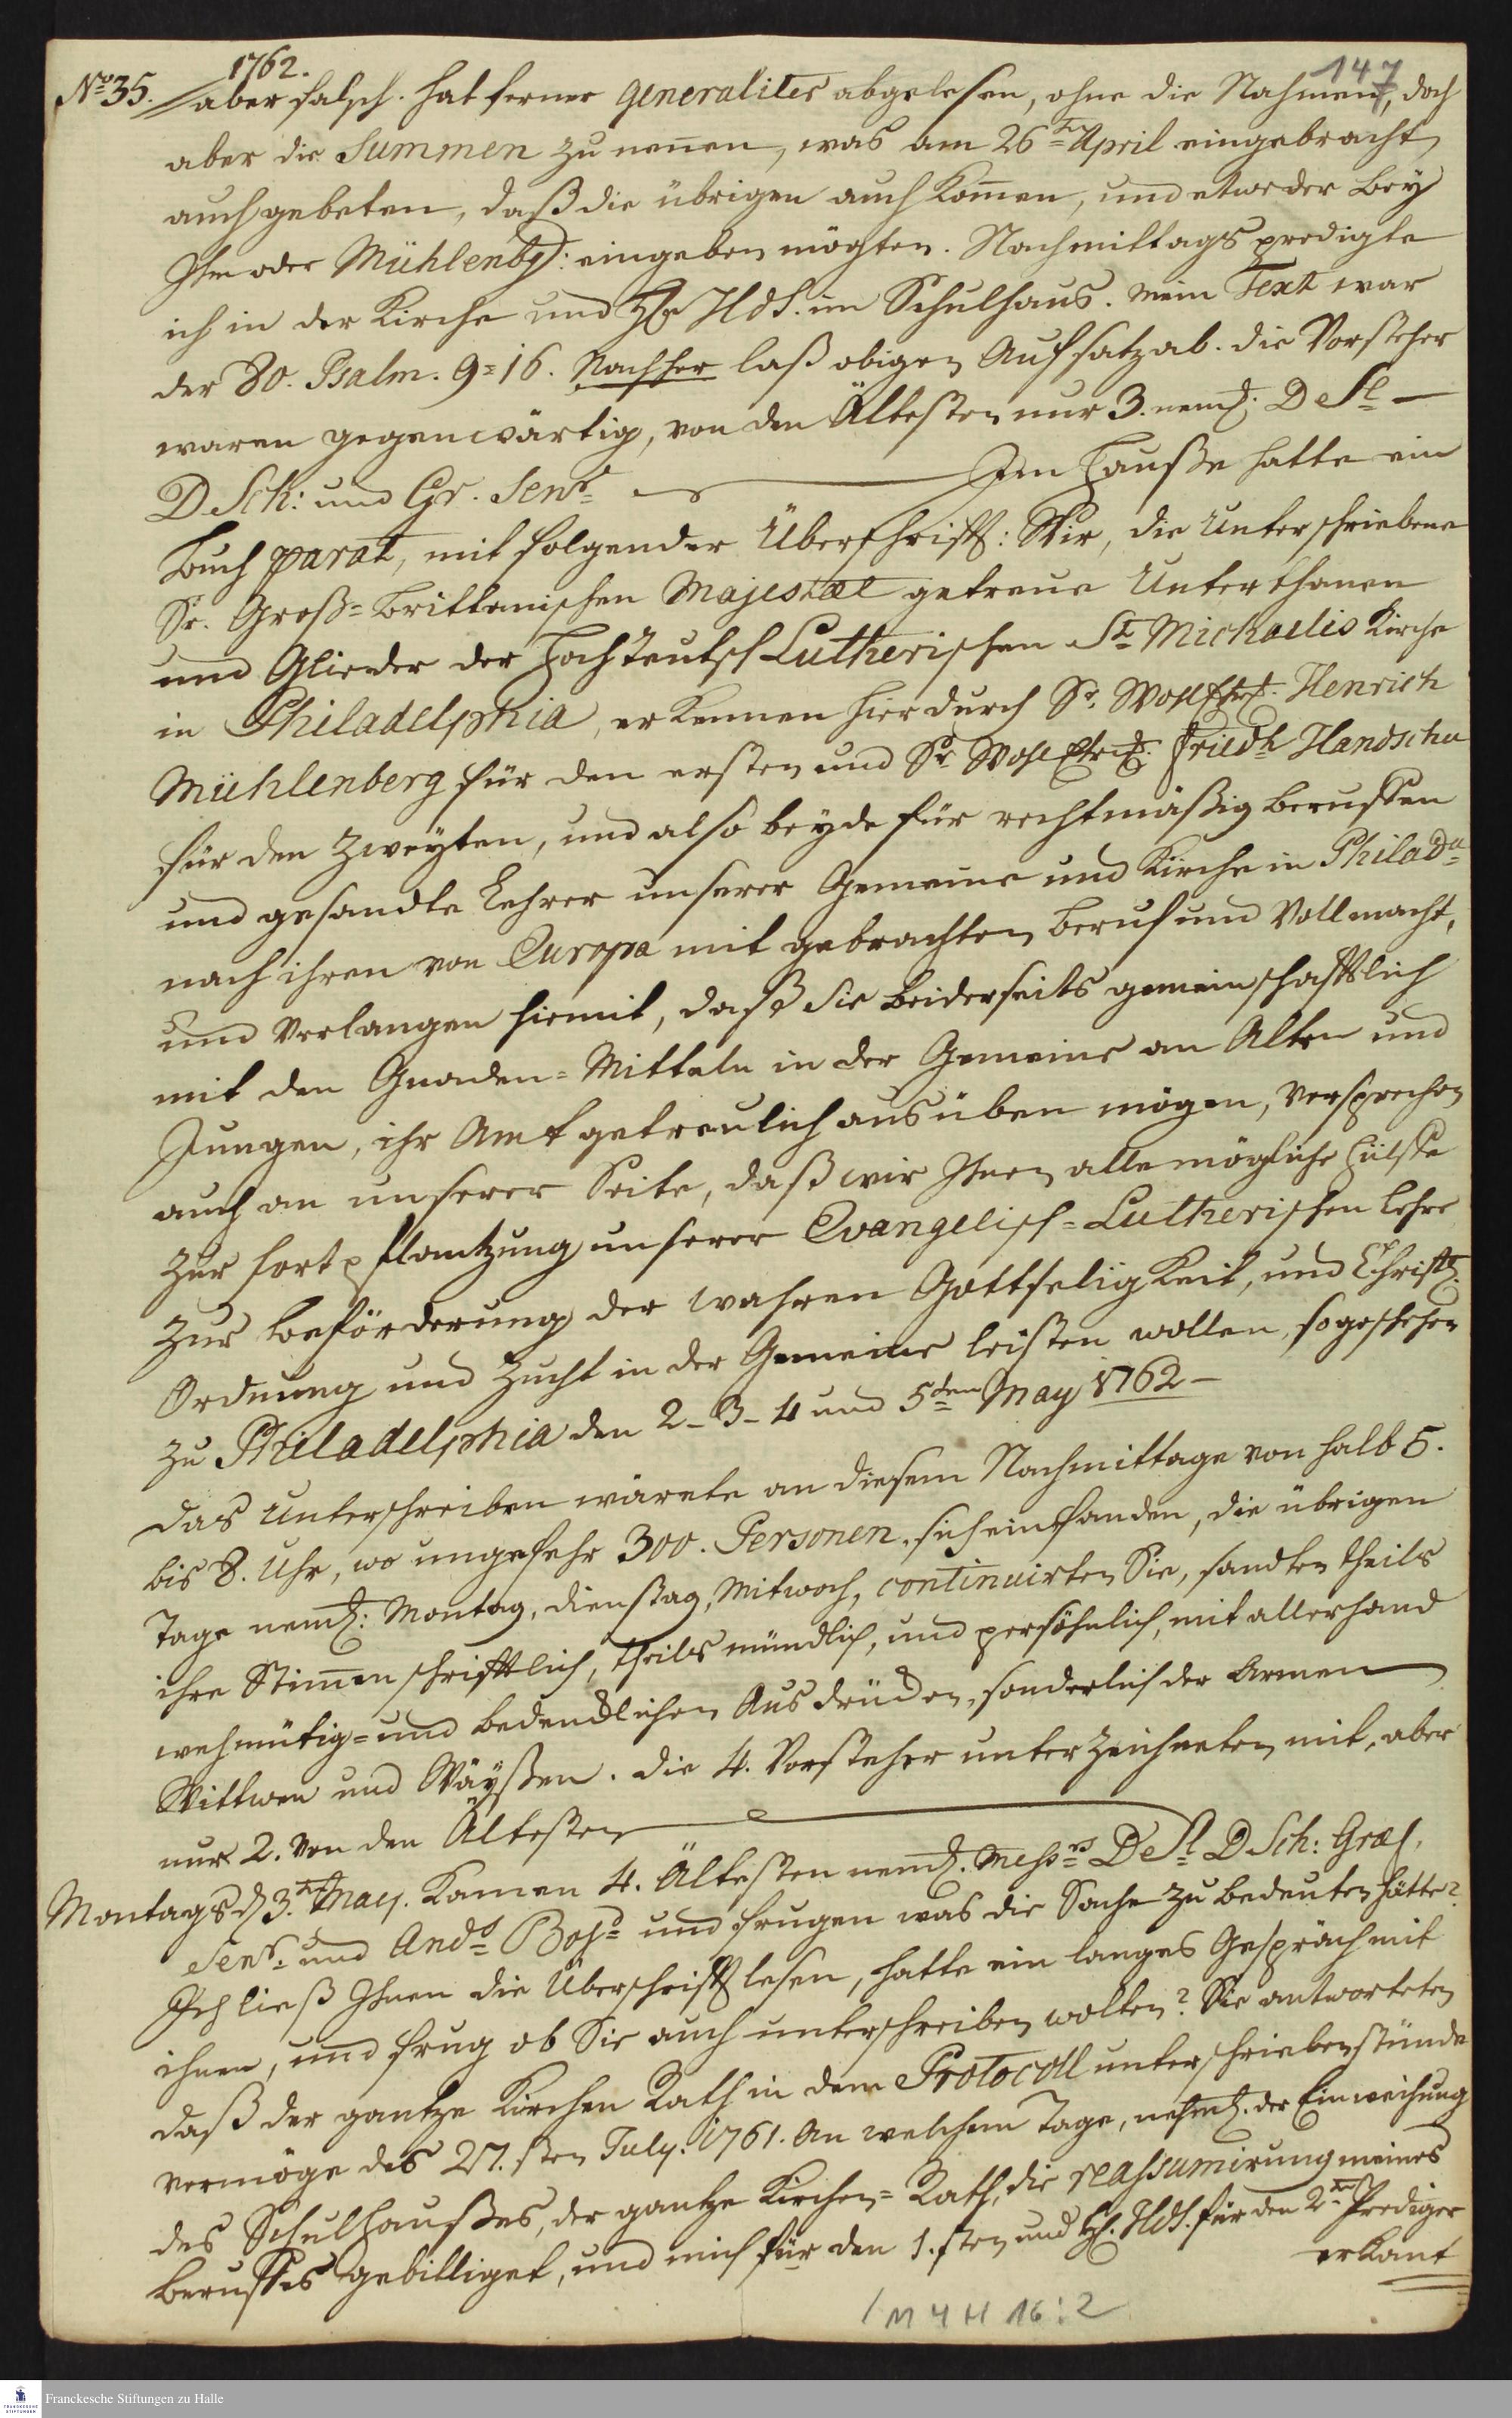 1762.
147
No 35. aber falsch. hat ferner generaliter abgelesen, ohne die Nahmen, doch
aber die Summen zu nennen, was am 26ten April eingebracht,
auch gebeten, daß die übrigen auch kom̅en, und etweder bey
Ihm oder Mühlenbg: eingeben mögten. Nachmittags predigte
ich in der Kirche und Hr Hds. im Schulhaus. mein Text war
der 80. Psalm. 9=16. Nachher laß obigen Aufsatz ab. die Vorsteher
waren gegenwärtig, von den Ältesten nur 3. neml. D Sl —
D Sch: und Gr. Senr — Im Hauße hatte ein
Buch parat, mit folgender Überschrifft: Wir, die Unterschriebene
Sr. Groß=Brittanischen Majestæt getreue Unterthanen
und Glieder der Hochteutsch Lutherischen St Michaelis Kirche
in Philadelphia, erkennen hierdurch Sr. WohlEhrd. Henrich
Mühlenberg für den ersten und Sr WohlEhrd. Friedh Handschu
für den Zweyten, und also beyde für rechtmäßig beruffen
und gesandte Lehrer unserer Gemeine und Kirche in Philada
nach ihren von Europa mit gebrachten Beruf und Vollmacht,
und verlangen hiemit, daß Sie beiderseits gemeinschafftlich
mit den Gnaden=Mitteln in der Gemeine an Alten und
Jungen, ihr Amt getreulich ausüben mögen, versprechen
auch an unserer Seite, daß wir Ihnen alle mögliche Hülffe
zur fortpflantzung unserer Evangelisch=Lutherischen Lehre
zur beförderung der wahren Gottseligkeit, und Christl.
Ordnung und Zucht in der Gemeine leisten wollen, so geschehen
zu Philadelphia den 2-3-4 und 5ten May 1762 -
das Unterschreiben wärete an diesem Nachmittage von halb 5.
bis 8. Uhr, wo ungefehr 300. Personen sich einfanden, die übrigen
Tage neml: Montag, dienstag, Mitwoch, continuirten Sie, sandten theils
ihre Stim̅en schrifftlich, theils mündlich, und persöhnlich, mit allerhand
wehmütig= und bedencklichen Ausdrücken, sonderlich der Armen
Wittwen und Wäyßen. die 4. Vorsteher unterzeichneten mit, aber
nur 2. von den Ältesten
Montags d 3.ten May. kamen 4. Ältesten neml. Messrs D Sl D Sch: Græf,
Senr. und Ands Boßd und frugen was die Sache zu bedeuten hätte?
Ich ließ Ihnen die Überschrifft lesen, hatte ein langes Gespräch mit
ihnen, und frug ob Sie auch unterschreiben wolten? Sie antworteten
daß der gantze Kirchen Rath in dem Protocoll unterschrieben stünde
vermöge des 27.sten July. 1761. An welchem Tage, nehml. der Einweihung
des Schulhaußes, der gantze Kirchen=Rath, die reassumirung meines
Beruffes gebilliget, und mich für den 1.sten und H. Hds. für den 2ten Prediger
erkant
1 M 4 H 16 : 2
Franckesche Stiftungen zu Halle